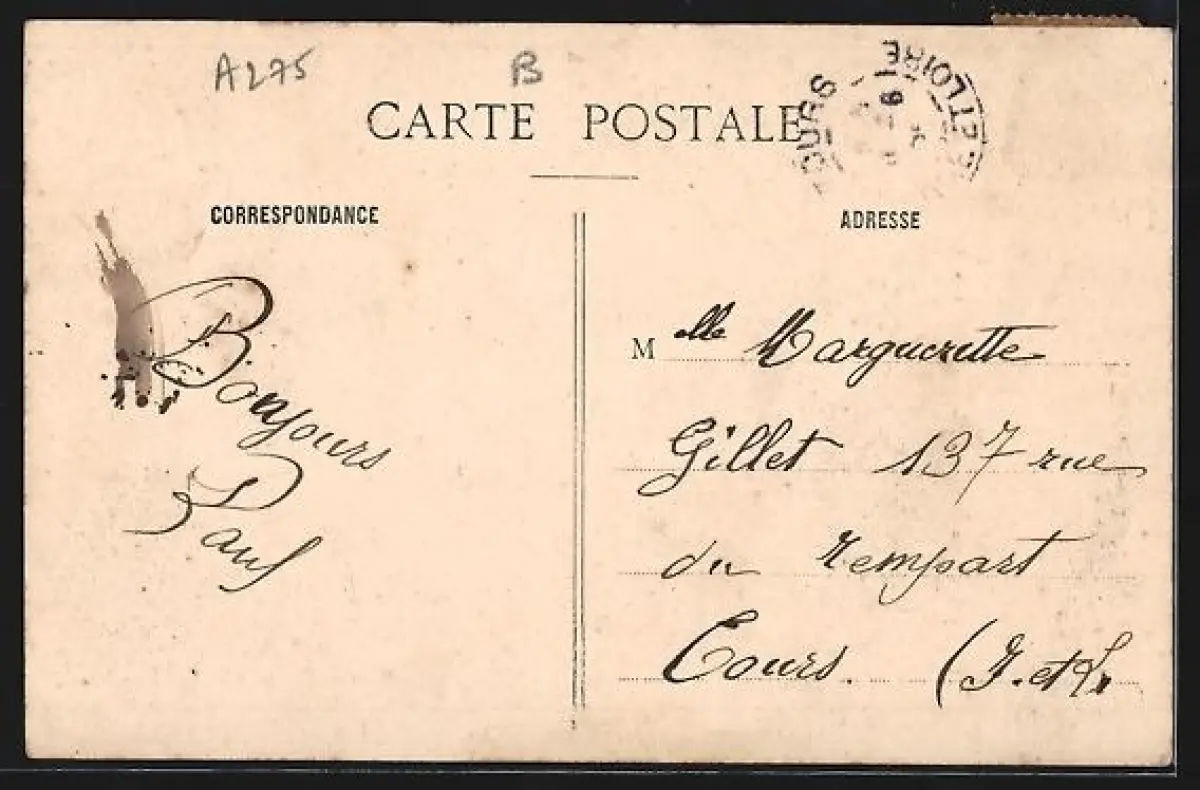 A275 B
CARTE POSTALE
TOURS
ET LOIRE
CORRESPONDANCE
ADRESSE
Bonjours
Paul
Melle Marguerette
Gillet 137 rue
du rempart
Tours. (I. et L.